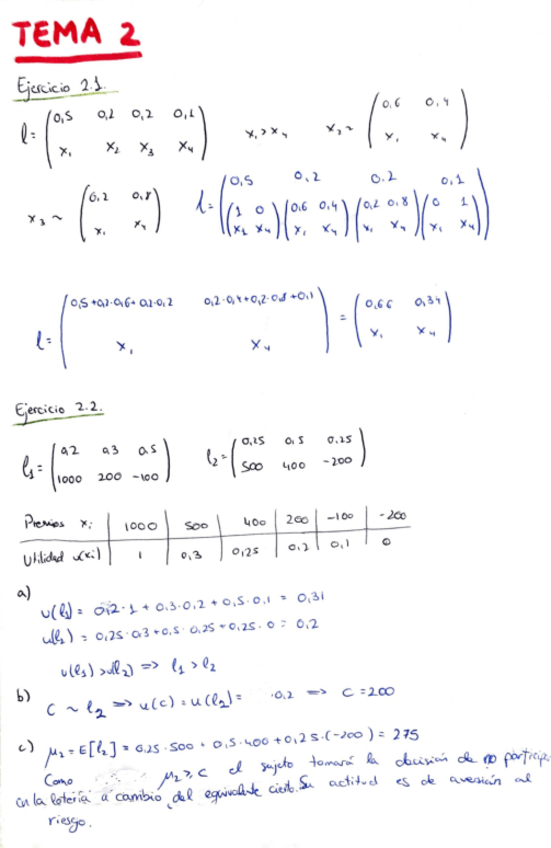 TEMA 2
Ejercicio 2.1.
l = ( 0,5 0,2 0,2 0,1 ) x₁ > x₄ x₂ ~ ( 0,6 0,4 )
( x₁ x₂ x₃ x₄ ) ( x₁ x₄ )
x₃ ~ ( 0,2 0,8 ) l = ( 0,5 0,2 0.2 0,1 )
( x₁ x₄ ) ( (1 0) (0,6 0,4) (0,2 0,8) (0 1) )
( (x₁ x₄) (x₁ x₄) (x₁ x₄) (x₁ x₄) )
l = ( 0,5+0,2·0,6+0,2·0,2 0,2·0,4+0,2·0,8+0,1 ) = ( 0,66 0,34 )
( x₁ x₄ ) ( x₁ x₄ )
Ejercicio 2.2.
l₁ = ( 0,2 0,3 0,5 ) l₂ = ( 0,25 0,5 0,25 )
( 1000 200 -100 ) ( 500 400 -200 )
Premios xᵢ | 1000 | 500 | 400 | 200 | -100 | -200
Utilidad u(xᵢ) | 1 | 0,3 | 0,25 | 0,2 | 0,1 | 0
a)
u(l₁) = 0,2·1 + 0,3·0,2 + 0,5·0,1 = 0,31
u(l₂) = 0,25·0,3+0,5·0,25+0,25·0 = 0,2
u(l₁) > u(l₂) => l₁ > l₂
b) C ~ l₂ => u(c) = u(l₂) = 0,2 => C = 200
c) μ₂ = E[l₂] = 0,25·500 + 0,5·400 + 0,25·(-200) = 275
Como μ₂ ≥ C el sujeto tomará la decisión de no participar
en la lotería a cambio del equivalente cierto. Su actitud es de aversión al
riesgo.